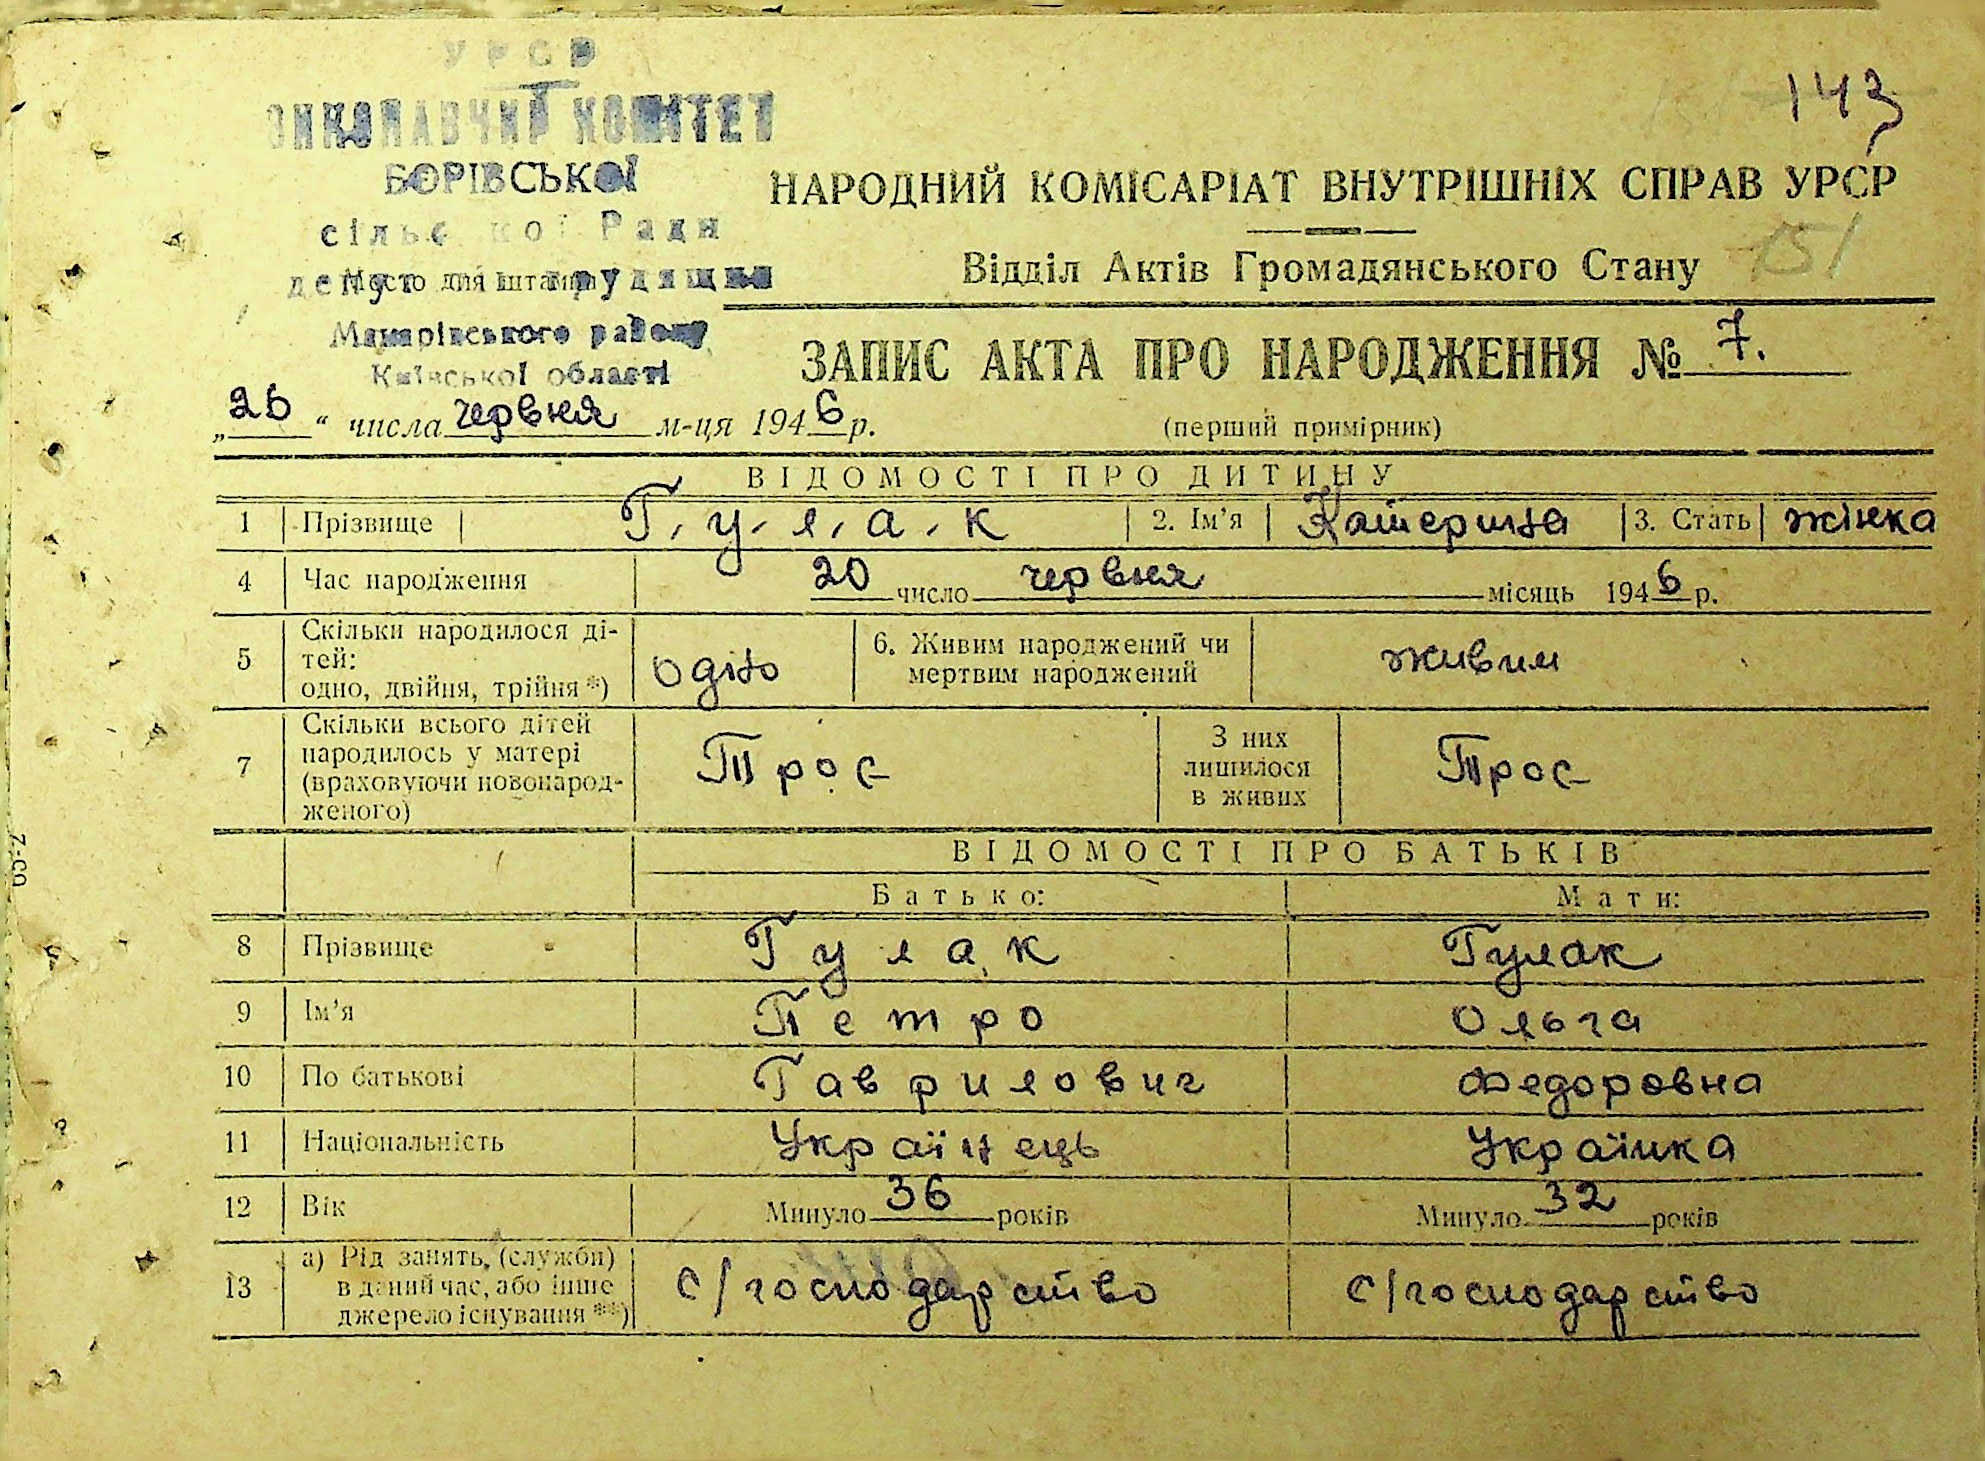 УРСР
ВИКОНАВЧИЙ КОМІТЕТ
БОРІВСЬКОЇ
сільської Ради
Місто для штампа
Макарівського району
Київської області
143
НАРОДНИЙ КОМІСАРІАТ ВНУТРІШНІХ СПРАВ УРСР
151
Відділ Актів Громадянського Стану
ЗАПИС АКТА ПРО НАРОДЖЕННЯ № 7.
„26“ числа червня м-ця 1946 р.
(перший примірник)
ВІДОМОСТІ ПРО ДИТИНУ
1 Прізвище Гулак 2. Ім’я Катерина 3. Стать жінка
4 Час народження 20 число червня місяць 1946 р.
5 Скільки народилося ді-
тей:
одно, двійня, трійня *) одно 6. Живим народжений чи
мертвим народжений живим
7 Скільки всього дітей
народилось у матері
(враховуючи новонарод-
женого) Троє З них
лишилося
в живих Троє
ВІДОМОСТІ ПРО БАТЬКІВ
Батько: Мати:
8 Прізвище Гулак Гулак
9 Ім’я Петро Ольга
10 По батькові Гаврилович Федоровна
11 Національність Українець Українка
12 Вік Минуло 36 років Минуло 32 років
13 а) Рід занять, (служби)
в даний час, або інше
джерело існування **) с/господарство с/господарство